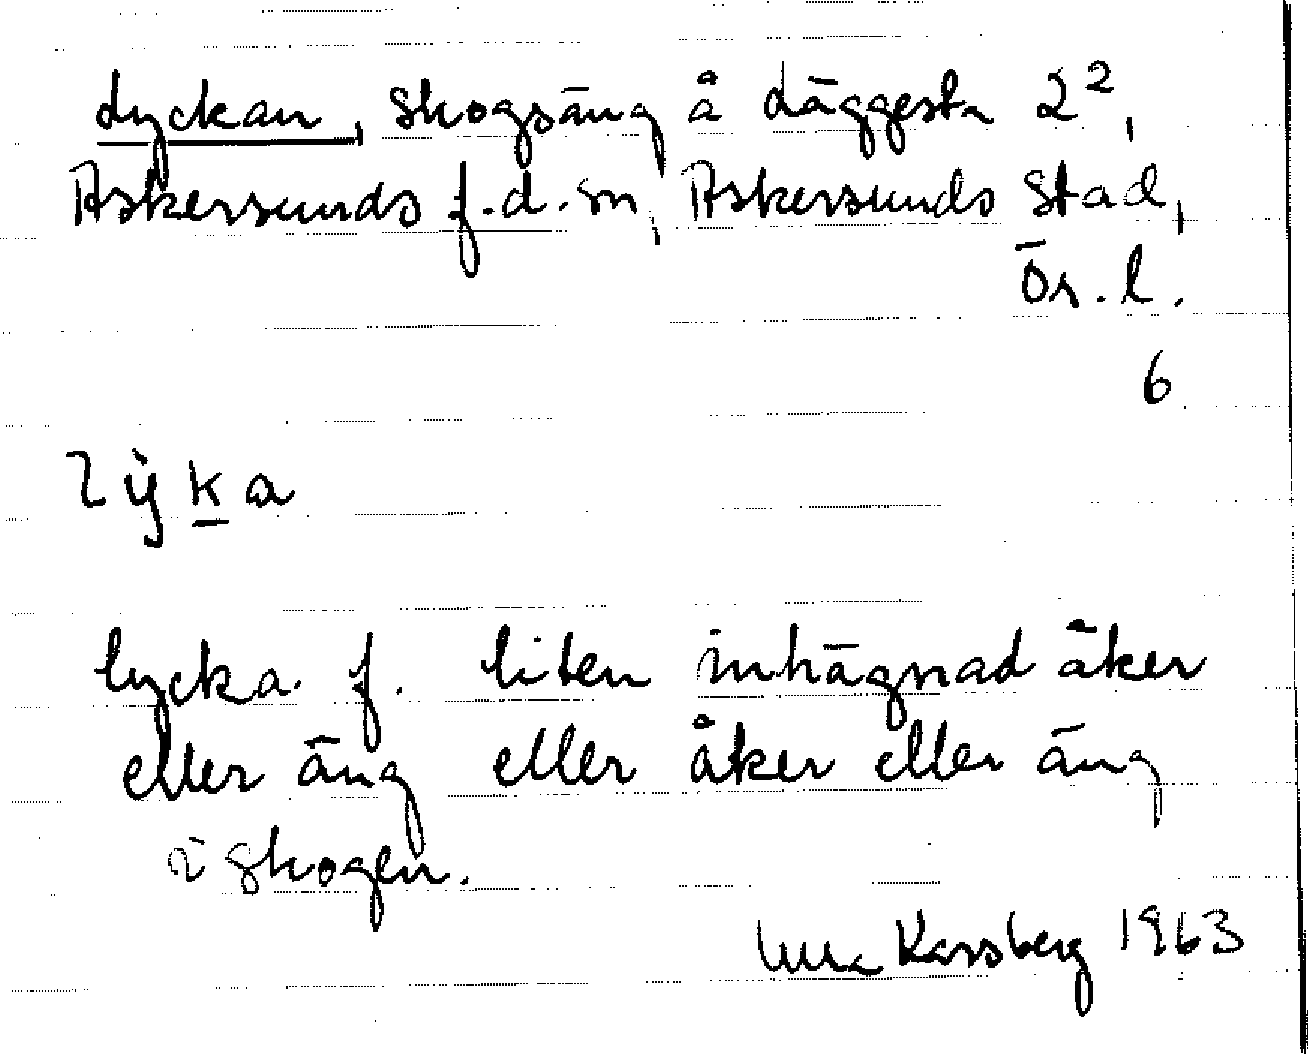 Lyckan, skogsäng å Läggesta 2²,
Askersunds f.d. sn, Askersunds stad,
Ör. l.
6
lẏka
lycka f. liten inhägnad åker
eller äng eller åker eller äng
i skogen.
Karsberg 1963